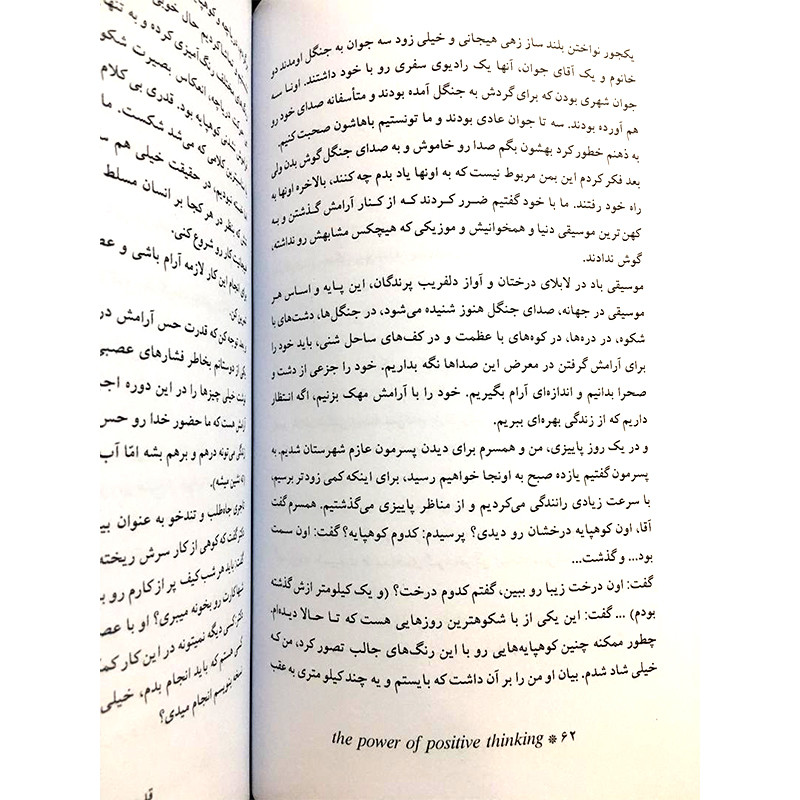 یکجور نواختن بلند ساز زهی هیجانی و خیلی زود سه جوان به جنگل اومدند دو
خانوم و یک آقای جوان، آنها یک رادیوی سفری رو با خود داشتند. اونا سه
جوان شهری بودن که برای گردش به جنگل آمده بودند و متأسفانه صدای خود رو
هم آورده بودند. سه تا جوان عادی بودند و ما تونستیم باهاشون صحبت کنیم.
به ذهنم خطور کرد بهشون بگم صدا رو خاموش و به صدای جنگل گوش بدن ولی
بعد فکر کردم این بمن مربوط نیست که به اونها یاد بدم چه کنند، بالاخره اونها به
راه خود رفتند. ما با خود گفتیم ضرر کردند که از کنار آرامش گذشتن و به
کهن ترین موسیقی دنیا و همخوانیش و موزیکی که هیچکس مشابهش رو نداشته،
گوش ندادند.
موسیقی باد در لابلای درختان و آواز دلفریب پرندگان، این پایه و اساس هر
موسیقی در جهانه، صدای جنگل هنوز شنیده می‌شود، در جنگل‌ها، دشت‌های با
شکوه، در دره‌ها، در کوه‌های با عظمت و در کف‌های ساحل شنی، باید خود را
برای آرامش گرفتن در معرض این صداها نگه بداریم. خود را جزعی از دشت و
صحرا بدانیم و اندازه‌ای آرام بگیریم. خود را با آرامش مهک بزنیم، اگه انتظار
داریم که از زندگی بهره‌ای ببریم.
و در یک روز پاییزی، من و همسرم برای دیدن پسرمون عازم شهرستان شدیم. به
پسرمون گفتیم یازده صبح به اونجا خواهیم رسید، برای اینکه کمی زودتر برسیم،
با سرعت زیادی رانندگی می‌کردیم و از مناظر پاییزی می‌گذشتیم. همسرم گفت
آقا، اون کوهپایه درخشان رو دیدی؟ پرسیدم: کدوم کوهپایه؟ گفت: اون سمت
بود... و گذشت...
گفت: اون درخت زیبا رو ببین، گفتم کدوم درخت؟ (و یک کیلومتر ازش گذشته
بودم) ... گفت: این یکی از با شکوهترین روزهایی هست که تا حالا دیده‌ام.
چطور ممکنه چنین کوهپایه‌هایی رو با این رنگ‌های جالب تصور کرد، من که
خیلی شاد شدم. بیان او من را بر آن داشت که بایستم و یه چند کیلو متری به عقب
the power of positive thinking ❊ ۶۲
های مختلف رنگ‌آمیزی کرده و به تنها
حرکت دریاچه، انعکاس بصیرت شکو
شدنی کوهپایه بود. قدری بی کلام
کلامی که می‌شد شکست. ما
نبودیم، در حقیقت خیلی هم س
منظر در هر کجا بر انسان مسلط
کار رو شروع کنی.
برای انجام این کار لازمه آرام باشی و عص
تمرین کن.
توجه کن که قدرت حس آرامش در
یکی از دوستانم بخاطر فشارهای عصبی
خیلی چیزها را در این دوره اجـ
آرامش هست که ما حضور خدا رو حس
زندگی می‌تونه درهم و برهم بشه امّا آب
ته نشین میشه).
جاه‌طلب و تندخو به عنوان بیـ
گفت که کوهی از کار سرش ریخته
باید هر شب کیف پر از کارم رو بـ
کارت رو بخونه میبری؟ او با عصـ
کسی دیگه نمیتونه در این کار کمک
کسی هستم که باید انجام بدم، خیلی
نسخه بنویسم انجام میدی؟